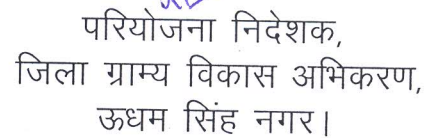 परियोजना निदेशक,
जिला ग्राम्य विकास अभिकरण,
ऊधम सिंह नगर।